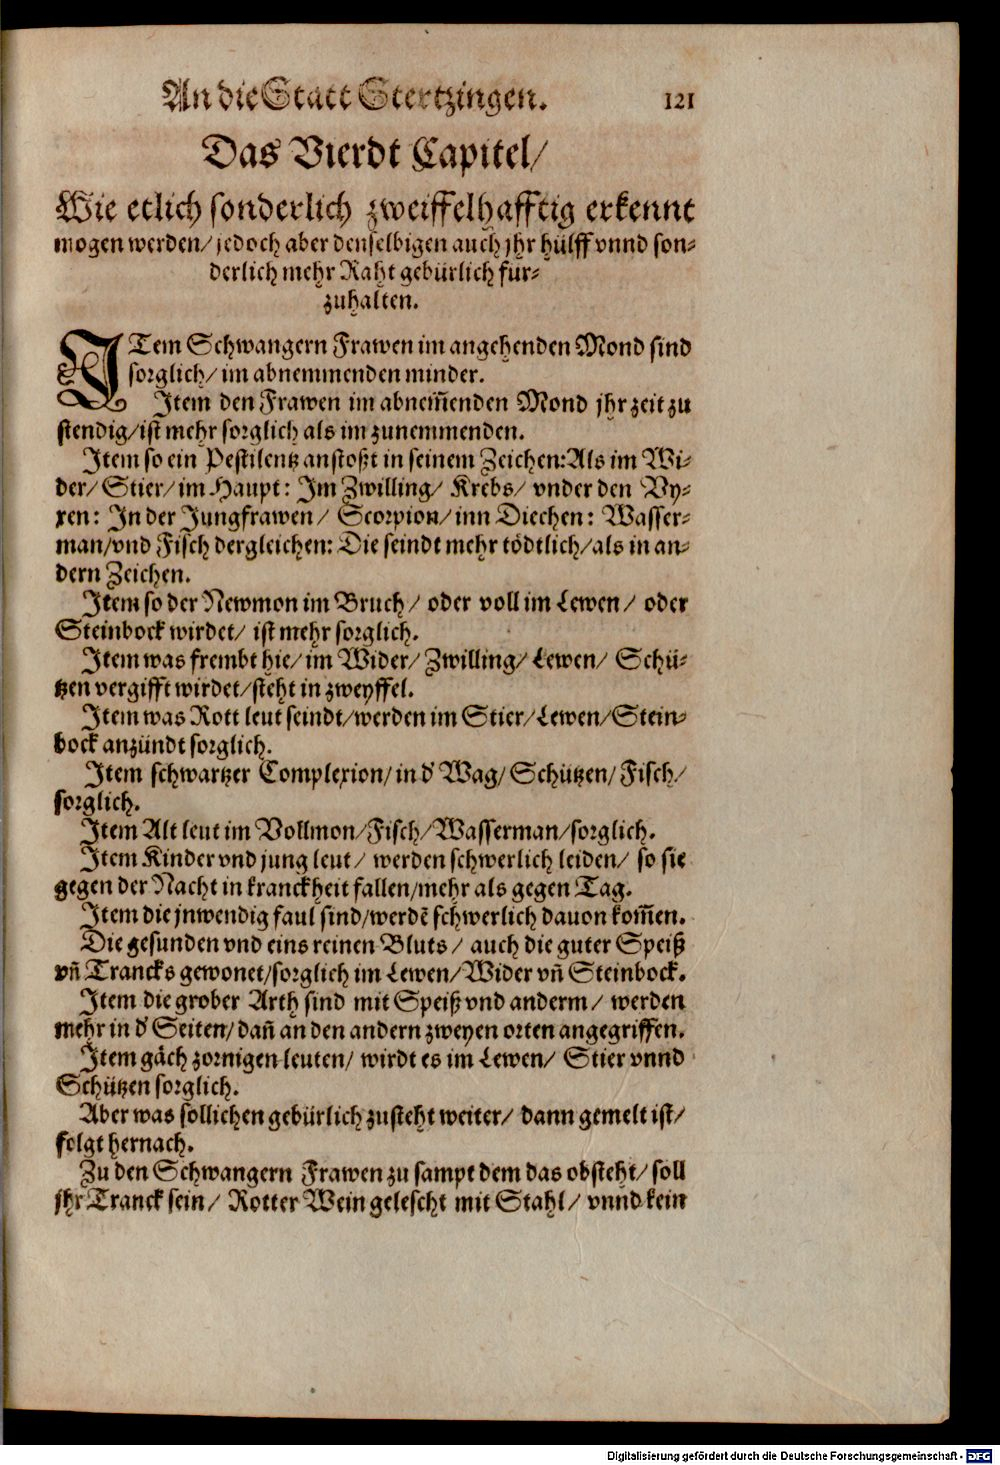 An die Statt Stertzingen. 121
Das Vierdt Capitel/
Wie etlich sonderlich zweiffelhafftig erkennt
mogen werden/ jedoch aber denselbigen auch jhr hülff vnnd son-
derlich mehr Raht gebürlich für-
zuhalten.
ITem Schwangern Frawen im angehenden Mond sind
sorglich/ im abnemmenden minder.
Item den Frawen im abnem̄enden Mond jhr zeit zu
stendig/ ist mehr sorglich als im zunemmenden.
Item so ein Pestilentz anstoßt in seinem Zeichen: Als im Wi-
der/ Stier/ im Haupt: Im Zwilling/ Krebs/ vnder den Vy-
xen: In der Jungfrawen/ Scorpion/ inn Diechen: Wasser-
man/ vnd Fisch dergleichen: Die seindt mehr tödtlich/ als in an-
dern Zeichen.
Item so der Newmon im Bruch/ oder voll im Lewen/ oder
Steinbock wirdet/ ist mehr sorglich.
Item was frembt hie/ im Wider/ Zwilling/ Lewen/ Schü-
tzen vergifft wirdet/ steht in zweyffel.
Item was Rott leut seindt/ werden im Stier/ Lewen/ Stein-
bock anzündt sorglich.
Item schwartzer Complexion/ in d' Wag/ Schützen/ Fisch/
sorglich.
Item Alt leut im Vollmon/ Fisch/ Wasserman/ sorglich.
Item Kinder vnd jung leut/ werden schwerlich leiden/ so sie
gegen der Nacht in kranckheit fallen/ mehr als gegen Tag.
Item die jnwendig faul sind/ werdē schwerlich dauon kom̄en.
Die gesunden vnd eins reinen Bluts/ auch die guter Speiß
vn̄ Trancks gewonet/ sorglich im Lewen/ Wider vn̄ Steinbock.
Item die grober Arth sind mit Speiß vnd anderm/ werden
mehr in d' Seiten/ dan̄ an den andern zweyen orten angegriffen.
Item gäch zornigen leuten/ wirdt es im Lewen/ Stier vnnd
Schützen sorglich.
Aber was sollichen gebürlich zusteht weiter/ dann gemelt ist/
folgt hernach.
Zu den Schwangern Frawen zu sampt dem das obsteht/ soll
jhr Tranck sein/ Rotter Wein gelescht mit Stahl/ vnnd kein
Digitalisierung gefördert durch die Deutsche Forschungsgemeinschaft - DFG